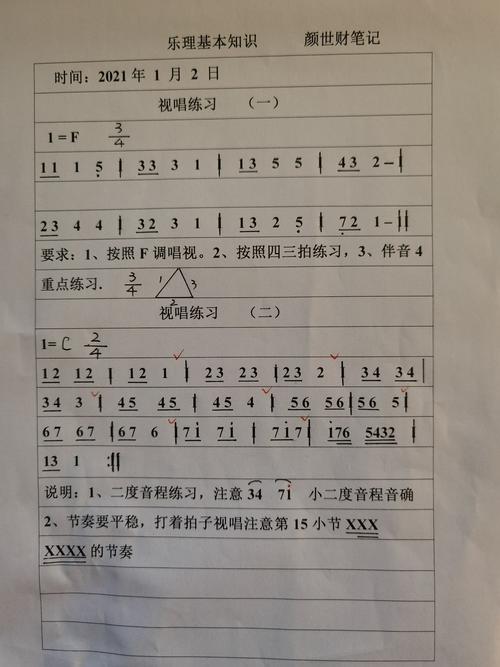 乐理基本知识 颜世财笔记
时间：2021 年 1 月 2 日
视唱练习 （一）
1=F 3/4
11 1 5 | 33 3 1 | 13 5 5 | 43 2－|
23 4 4 | 32 3 1 | 13 2 5 | 72 1－||
要求：1、按照 F 调唱视。2、按照四三拍练习，3、伴音 4
重点练习. 3/4 1 3 2
视唱练习 （二）
1= C 2/4
12 12 | 12 1 | 23 23 | 23 2 | 34 34 |
34 3 | 45 45 | 45 4 | 56 56 | 56 5 |
67 67 | 67 6 | 7i 7i | 7i 7 | i76 5432 |
13 1 :||
说明：1、二度音程练习，注意 34 7i 小二度音程音确
2、节奏要平稳，打着拍子视唱注意第 15 小节 XXX
XXXX 的节奏